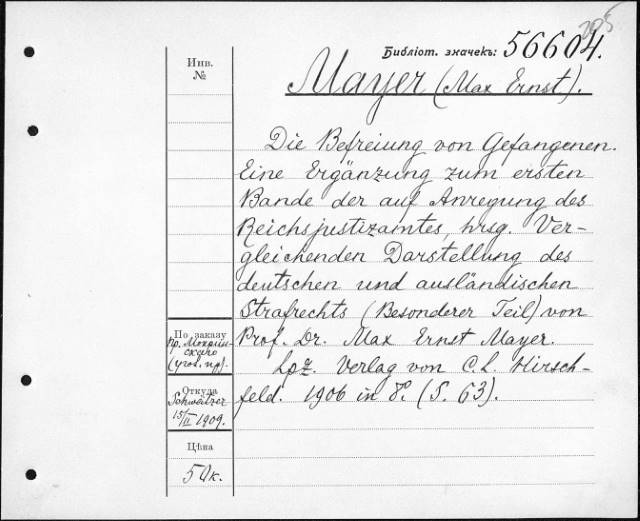 205
Библіот. значекъ: 56604.
Инв.
№
Mayer (Max Ernst).
Die Befreiung von Gefangenen.
Eine Ergänzung zum ersten
Bande der auf Anregung des
Reichsjustizamtes, hrsg. Ver-
gleichenden Darstellung des
deutschen und ausländischen
Strafrechts (Besonderer Teil) von
Prof. Dr. Max Ernst Mayer.
Lpz. Verlag von C. L. Hirsch-
feld. 1906 in 8°. (S. 63).
По заказу
пр. Мокрин-
скаго
(угол. пр).
Откуда
Schweitzer
15/II 1909.
Цѣна
50к.